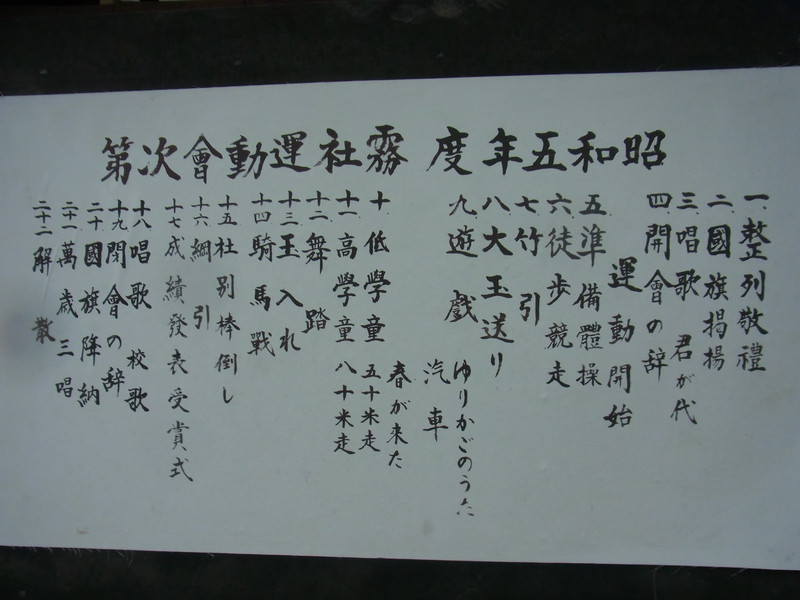 昭和五年度 霧社運動會次第
一.整列敬禮
二.國旗掲揚
三.唱歌 君が代
四.開會の辞
運動開始
五.準備體操
六.徒歩競走
七.竹引
八.大玉送り
九.遊戲 ゆりかごのうた
汽車
春が来た
十.低學童 五十米走
十一.高學童 八十米走
十二.舞踏
十三.玉入れ
十四.騎馬戰
十五.社別棒倒し
十六.綱引
十七.成績發表受賞式
十八.唱歌 校歌
十九.閉會の辞
二十.國旗降納
二十一.萬歲三唱
二十二.解散